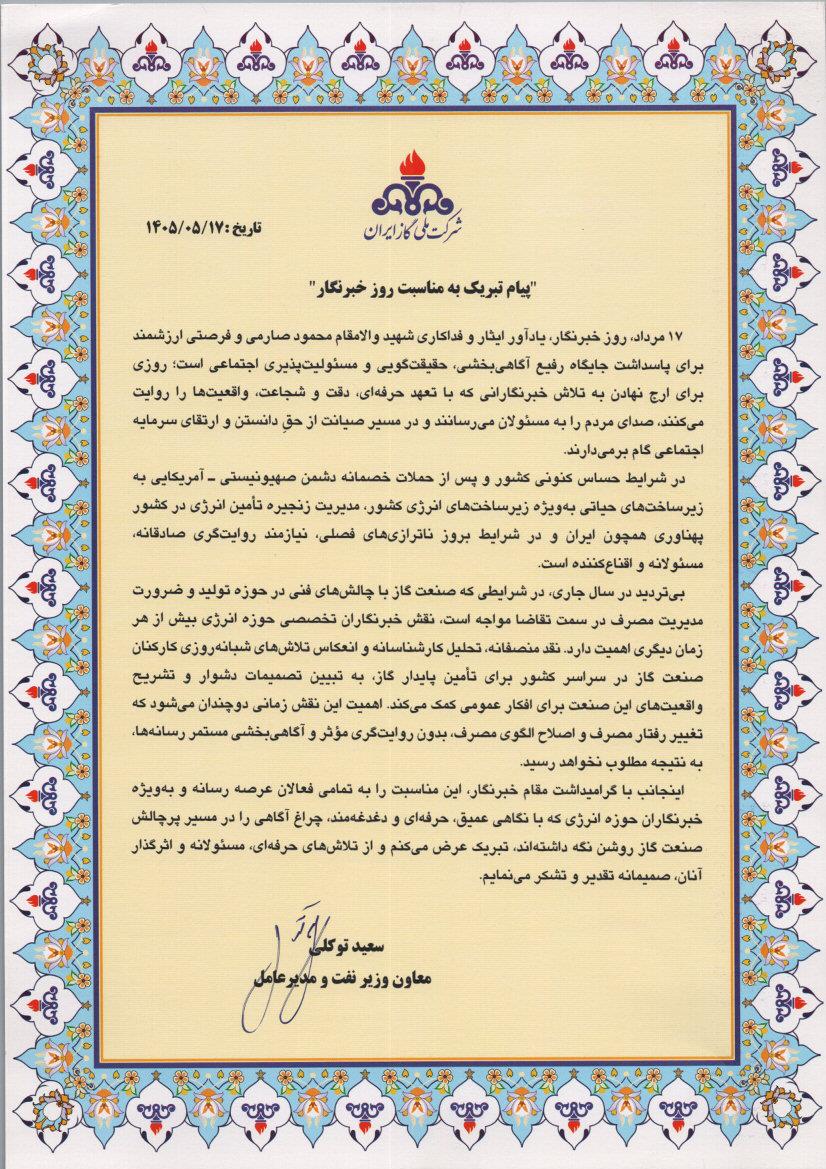 شرکت ملی گاز ایران
تاریخ: ۱۴۰۵/۰۵/۱۷
"پیام تبریک به مناسبت روز خبرنگار"
۱۷ مرداد، روز خبرنگار، یادآور ایثار و فداکاری شهید والامقام محمود صارمی و فرصتی ارزشمند
برای پاسداشت جایگاه رفیع آگاهی‌بخشی، حقیقت‌گویی و مسئولیت‌پذیری اجتماعی است؛ روزی
برای ارج نهادن به تلاش خبرنگارانی که با تعهد حرفه‌ای، دقت و شجاعت، واقعیت‌ها را روایت
می‌کنند، صدای مردم را به مسئولان می‌رسانند و در مسیر صیانت از حقِ دانستن و ارتقای سرمایه
اجتماعی گام برمی‌دارند.
در شرایط حساس کنونی کشور و پس از حملات خصمانه دشمن صهیونیستی – آمریکایی به
زیرساخت‌های حیاتی به‌ویژه زیرساخت‌های انرژی کشور، مدیریت زنجیره تأمین انرژی در کشور
پهناوری همچون ایران و در شرایط بروز ناترازی‌های فصلی، نیازمند روایت‌گری صادقانه،
مسئولانه و اقناع‌کننده است.
بی‌تردید در سال جاری، در شرایطی که صنعت گاز با چالش‌های فنی در حوزه تولید و ضرورت
مدیریت مصرف در سمت تقاضا مواجه است، نقش خبرنگاران تخصصی حوزه انرژی بیش از هر
زمان دیگری اهمیت دارد. نقد منصفانه، تحلیل کارشناسانه و انعکاس تلاش‌های شبانه‌روزی کارکنان
صنعت گاز در سراسر کشور برای تأمین پایدار گاز، به تبیین تصمیمات دشوار و تشریح
واقعیت‌های این صنعت برای افکار عمومی کمک می‌کند. اهمیت این نقش زمانی دوچندان می‌شود که
تغییر رفتار مصرف و اصلاح الگوی مصرف، بدون روایت‌گری مؤثر و آگاهی‌بخشی مستمر رسانه‌ها،
به نتیجه مطلوب نخواهد رسید.
اینجانب با گرامیداشت مقام خبرنگار، این مناسبت را به تمامی فعالان عرصه رسانه و به‌ویژه
خبرنگاران حوزه انرژی که با نگاهی عمیق، حرفه‌ای و دغدغه‌مند، چراغ آگاهی را در مسیر پرچالش
صنعت گاز روشن نگه داشته‌اند، تبریک عرض می‌کنم و از تلاش‌های حرفه‌ای، مسئولانه و اثرگذار
آنان، صمیمانه تقدیر و تشکر می‌نمایم.
سعید توکلی
معاون وزیر نفت و مدیرعامل